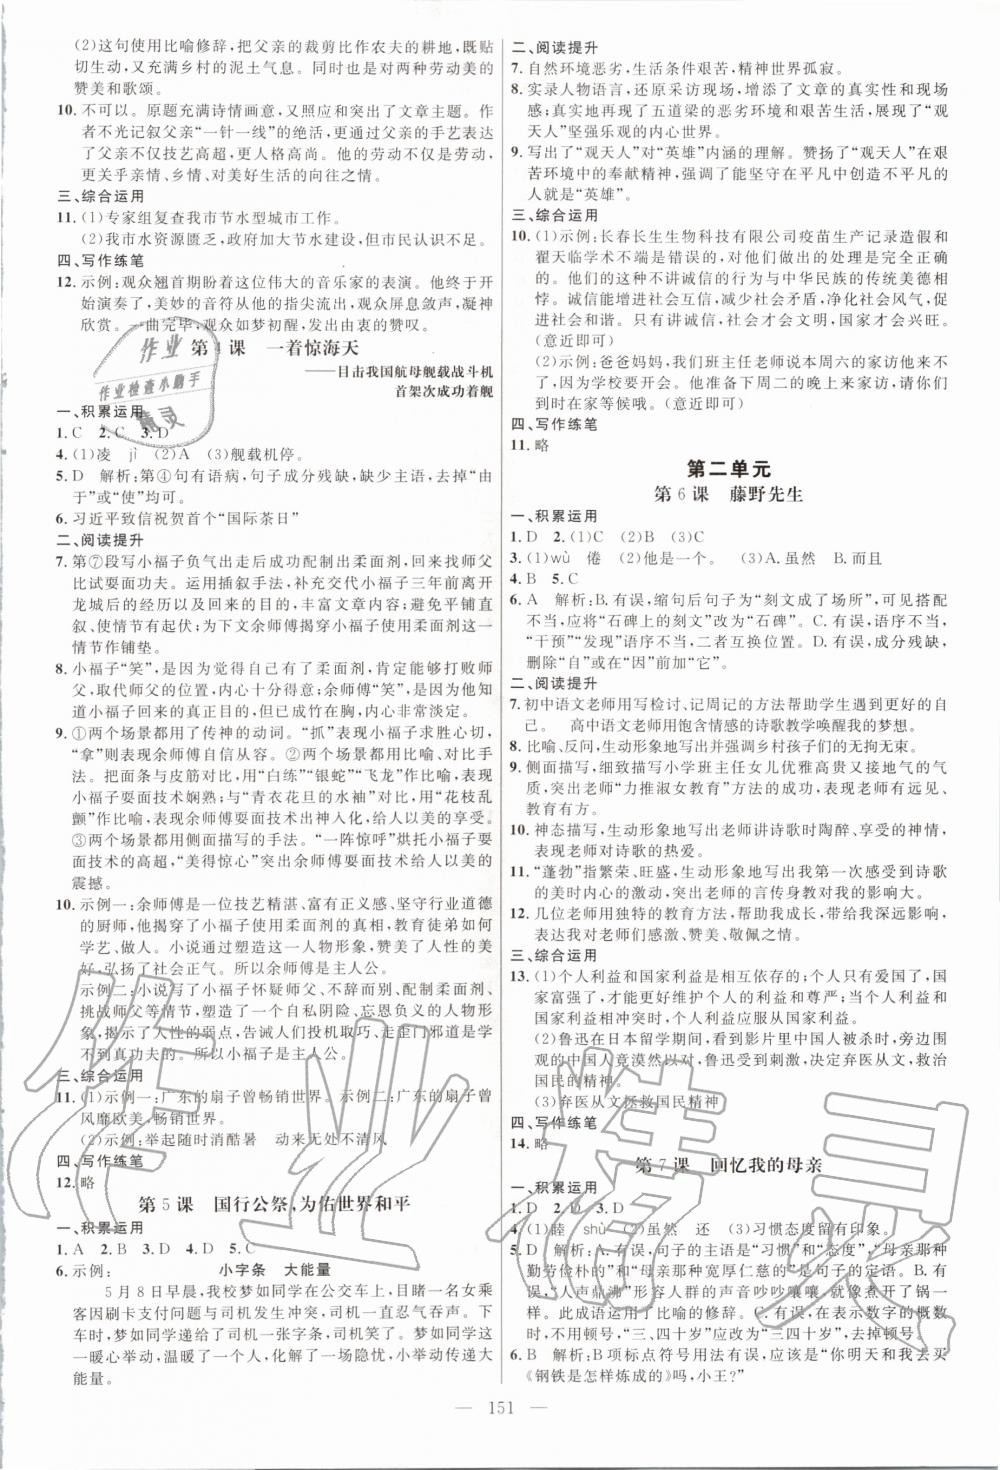 (2)这句使用比喻修辞,把父亲的裁剪比作农夫的耕地,既贴
切生动,又充满乡村的泥土气息。同时也是对两种劳动美的
赞美和歌颂。
10. 不可以。原题充满诗情画意,又照应和突出了文章主题。作
者不光记叙父亲“一针一线”的绝活,更重要的父亲的手艺表达
了父亲不仅技艺高超,更人格高尚。他的劳动不仅是劳动,
更关乎亲情、乡情、对美好生活的向往之情。
三、综合运用
11. (1)专家组复查我市节水型城市工作。
(2)我市水资源匮乏,政府加大节水力度,但市民认识不足。
四、写作练笔
12. 示例:观众翘首期盼着这位伟大的音乐家的表演。他终于开
始演奏了,美妙的音符从他的指尖流出,观众屏息敛声,凝神
欣赏。一曲完毕,观众如梦初醒,发出由衷的赞叹。
第4课 一着惊海天
——目击我国航母舰载战斗机
首架次成功着舰
一、积累运用
1. C 2. C 3. D
4. (1)凌 jì (2)A (3)舰载机停。
5. D 解析:第④句有语病,句子成分残缺,缺少主语,去掉“由
于”或“使”均可。
6. 习近平致信祝贺首个“国际茶日”
二、阅读提升
7. 第⑦段写小福子负气出走后成功配制出柔面剂,回来找师父
比试要面功夫。运用插叙手法,补充交代小福子三年前离开
龙城后的经历以及回来的目的,丰富文章内容;避免平铺直
叙、使情节有起伏;为下文余师傅揭穿小福子使用柔面剂这一
情节作铺垫。
8. 小福子“笑”,是因为觉得自己有了柔面剂,肯定能够打败师
父,取代师父的位置,内心十分得意;余师傅“笑”,是因为他知
道小福子回来的真正目的,但已成竹在胸,十分坦然。
9. ①两个场景都用了传神的动词。“抓”表现小福子求胜心切,
“拿”则表现余师傅自信从容。②两个场景都用对比手
法。高桩与皮筋对比,使用“白练”“银蛇”“飞龙”作比喻,表现
小福子耍面技术娴熟;与“青衣花旦的水袖”对比,用“花枝乱
颤”作比喻,表现余师傅耍面出神入化,给人以美的享受。
③两个场景都用侧面描写的手法。“一阵惊呼”烘托小福子耍
面技术的高超,“美得惊心”突出余师傅耍面技术给人以美的
震撼。
10. 示例一:余师傅是一位技艺精湛、富有正义感、坚守行业道德
的厨师,他揭穿了小福子使用柔面剂的真相,教育徒弟如何
学艺、做人。小说通过塑造这一人物形象,赞美了人性的美
好,弘扬了社会正气。所以余师傅是主人公。
示例二:小说写了小福子怀疑师父、不辞而别、配制柔面剂、
挑战师父等情节,塑造了一个自私阴险、忘恩负义的人物形
象,揭示了人性的弱点,告诫人们投机取巧、走歪门邪道是学
不到真功夫的。所以小福子是主人公。
三、综合运用
11. (1)示例一:广东的扇子曾畅销世界。示例二:广东的扇子曾
风靡欧美,畅销世界。
(2)示例:举起随时消酷暑 动来无处不清风
四、写作练笔
12. 略
第5课 国行公祭,为佑世界和平
一、积累运用
1. A 2. B 3. D 4. D 5. C
6. 示例: 小字条 大能量
5月8日早晨,我校梦如同学在公交车上,目睹一名女乘
客因刷卡支付问题与司机发生冲突,司机一直忍气吞声。下
车时,梦如同学递给了司机一张字条,司机笑了。梦如同学这
一暖心举动,温暖了一个司机,化解了一场隐忧,小举动有大
能量。
二、阅读提升
7. 自然环境恶劣,生活条件艰苦,精神世界孤寂。
8. 实录人物语言,还原采访现场,增添了文章的真实性和现场
感;真实地再现了五道梁的恶劣环境和艰苦生活,展现了“观
天人”坚强乐观的内心世界。
9. 写出了“观天人”对“英雄”内涵的理解。赞扬了“观天人”在艰
苦环境中的奉献精神,强调了能坚守在平凡中做出不平凡的
人就是“英雄”。
三、综合运用
10. (1)示例:长春长生生物科技有限公司疫苗生产记录造假和
翟天临学术不端是错误的,对他们做出的处理是完全正确
的。他们的不讲诚信的行为与中华民族的传统美德相
悖。诚信能增进社会互信,减少社会矛盾,净化社会风气,促
进社会和谐。只有讲诚信,社会才会文明,国家才会兴旺。
(意近即可)
(2)示例:爸爸妈妈,我们班主任老师说本周六的家访他来不
了了,学校临时安排他开会。他准备下周二的晚上来家访,请
你们在家等候哦。(意近即可)
四、写作练笔
11. 略
第二单元
第6课 藤野先生
一、积累运用
1. D 2. (1)C (2)B (3)C
3. (1)wù 倦 (2)他是一个。 (3)A.虽然 B.而且
4. B 5. C
6. A 解析:B.有误,缩句后句子为“刻文成了场所”,可见搭配
不当,应将“石碑上的刻文”改为“石碑”。C.有误,语序不当,
“干预”“发现”语序不当,二者互换位置。D.有误,成分残缺,
删除“自”或在“因”前加“它”。
二、阅读提升
7. 初中语文老师用写检讨、记周记的方法帮助学生遇到更好的自
己。 高中语文老师用饱含情感的诗歌教学唤醒我的梦想。
8. 比喻、反问,生动形象地写出了乡村孩子们的无拘无束。
9. 侧面描写,细致描写小学班主任女儿优雅高贵又接地气的气
质,突出班主任“力推淑女教育”方法的成功,表现老师有远见、
教育有方。
10. 神态描写,生动形象地写出老师讲诗歌时陶醉、享受的神情,
表现老师对诗歌的热爱。
11. “蓬勃”指繁荣、旺盛,生动形象地写出我第一次感受到诗歌
的美时内心的激动,突出老师的言传身教对我的影响大。
12. 几位老师用独特的教育方法,帮助我成长,带给我深远影响,
表达我对老师们感激、赞美、敬佩之情。
三、综合运用
13. (1)个人利益和国家利益是相互依存的;个人只有爱国了,国
家利益才能更好地维护个人的利益和尊严;当个人利益和国
家利益相冲突时,个人利益应服从国家利益。
(2)鲁迅在日本留学期间,看到影片里中国人被杀时,旁边围
观的中国人竟漠然以对,鲁迅受到刺激,决定弃医从文,救治
国民的精神。
(3)弃医从文拯救国民精神
四、写作练笔
14. 略
第7课 回忆我的母亲
一、积累运用
1. D 2. D 3. D
4. (1)睦 shù (2)虽然 还 (3)习惯态度留有印象。
5. D 解析:A.有误,句子的主语是“习惯”和“态度”,“母亲那种
勤劳俭朴的”“母亲那种宽厚仁慈的”是句子的定语。B.有
误,“人声鼎沸”形容人群的声音吵吵嚷嚷,就像煮开了锅一
样。此成语运用了比喻的修辞。C.有误,在表示数字的概数
时,不用顿号,“三、四十岁”应改为“三四十岁”,去掉顿号。
6. B 解析:B项标点符号用法有误,应该是“你明天和我去买
《钢铁是怎样炼成的》吗,小王?”
— 151 —
作业
作业检查小助手
精灵
作业精灵